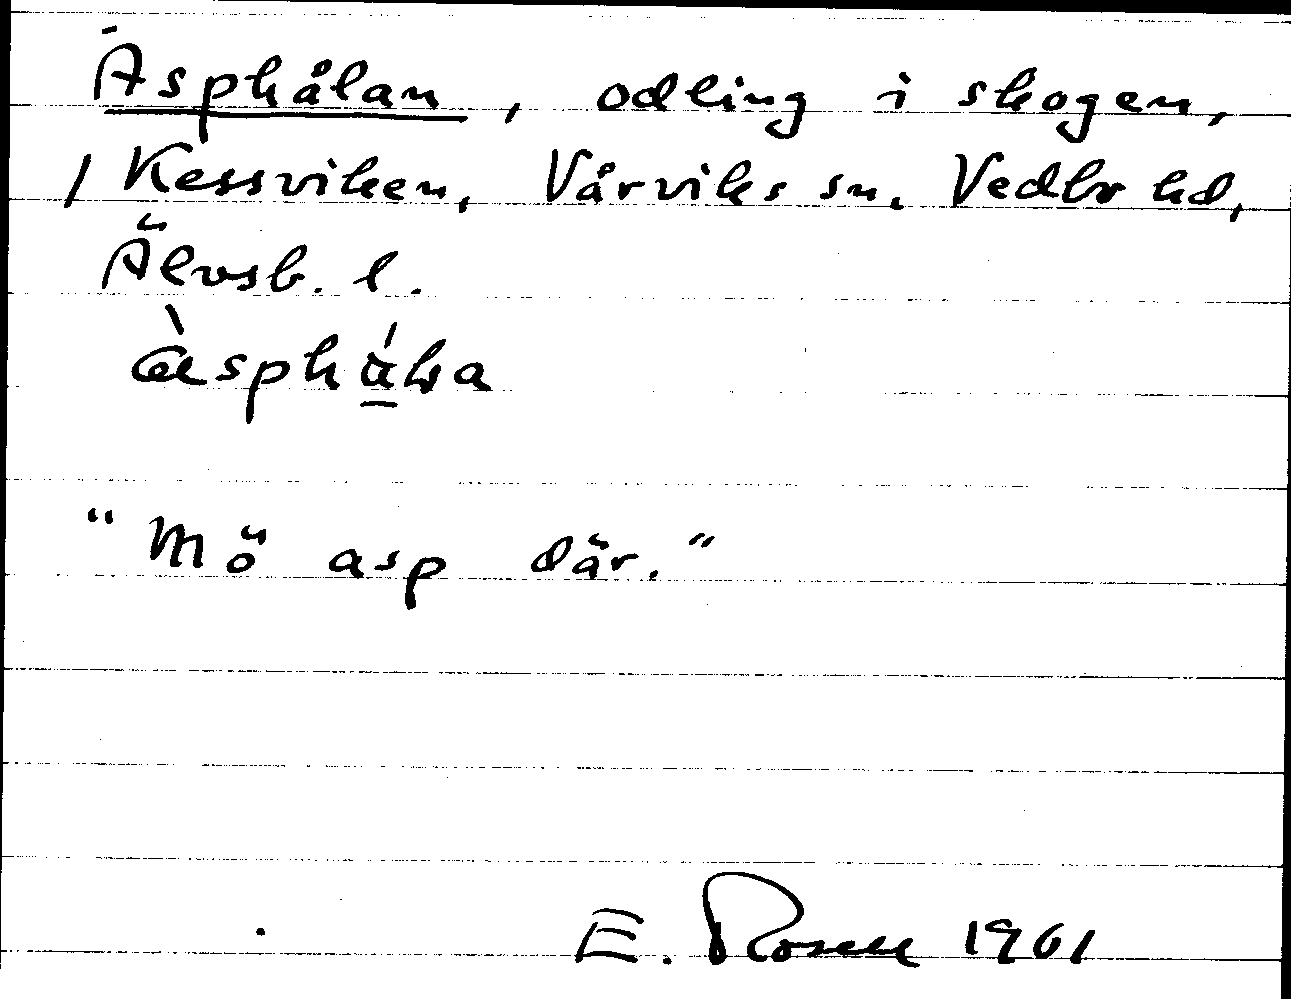 Asphålan, odling i skogen,
/ Kessviken, Vårviks sn. Vedbo hd,
Älvsb. l.
àsphála
"Mö asp där."
E. Rosell 1961